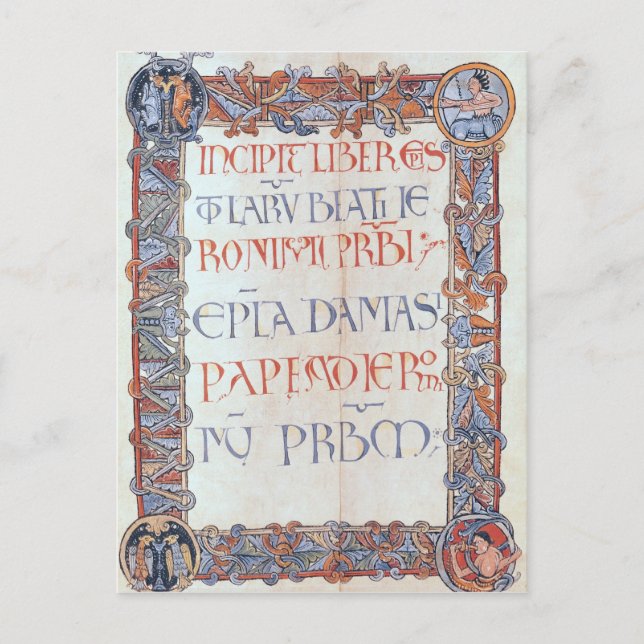 INCIPIT LIBER EPIS
TOLARU BEATI IE
RONIMI PRBI;
EPLA DAMASI
PAPE AD IERONI
MU PRBM;